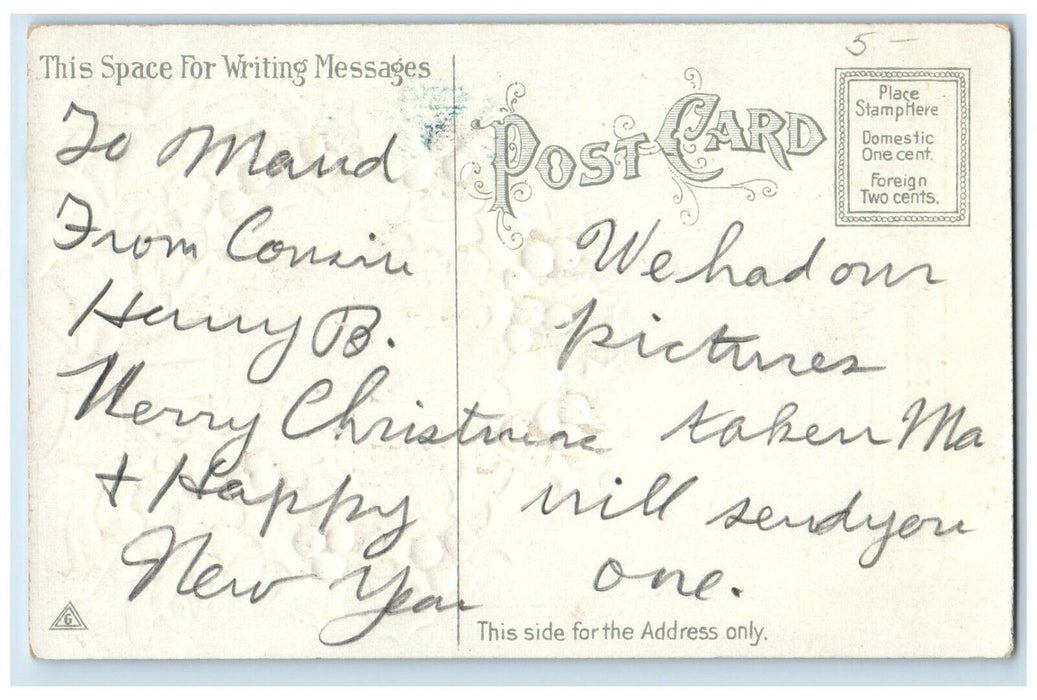 5-
This Space For Writing Messages
To Maud
From Cousin
Henry B.
Merry Christmas
+ Happy
New Year
POST CARD
Place
Stamp Here
Domestic
One cent.
Foreign
Two cents.
We had our
pictures
taken Ma
will send you
one.
G
This side for the Address only.